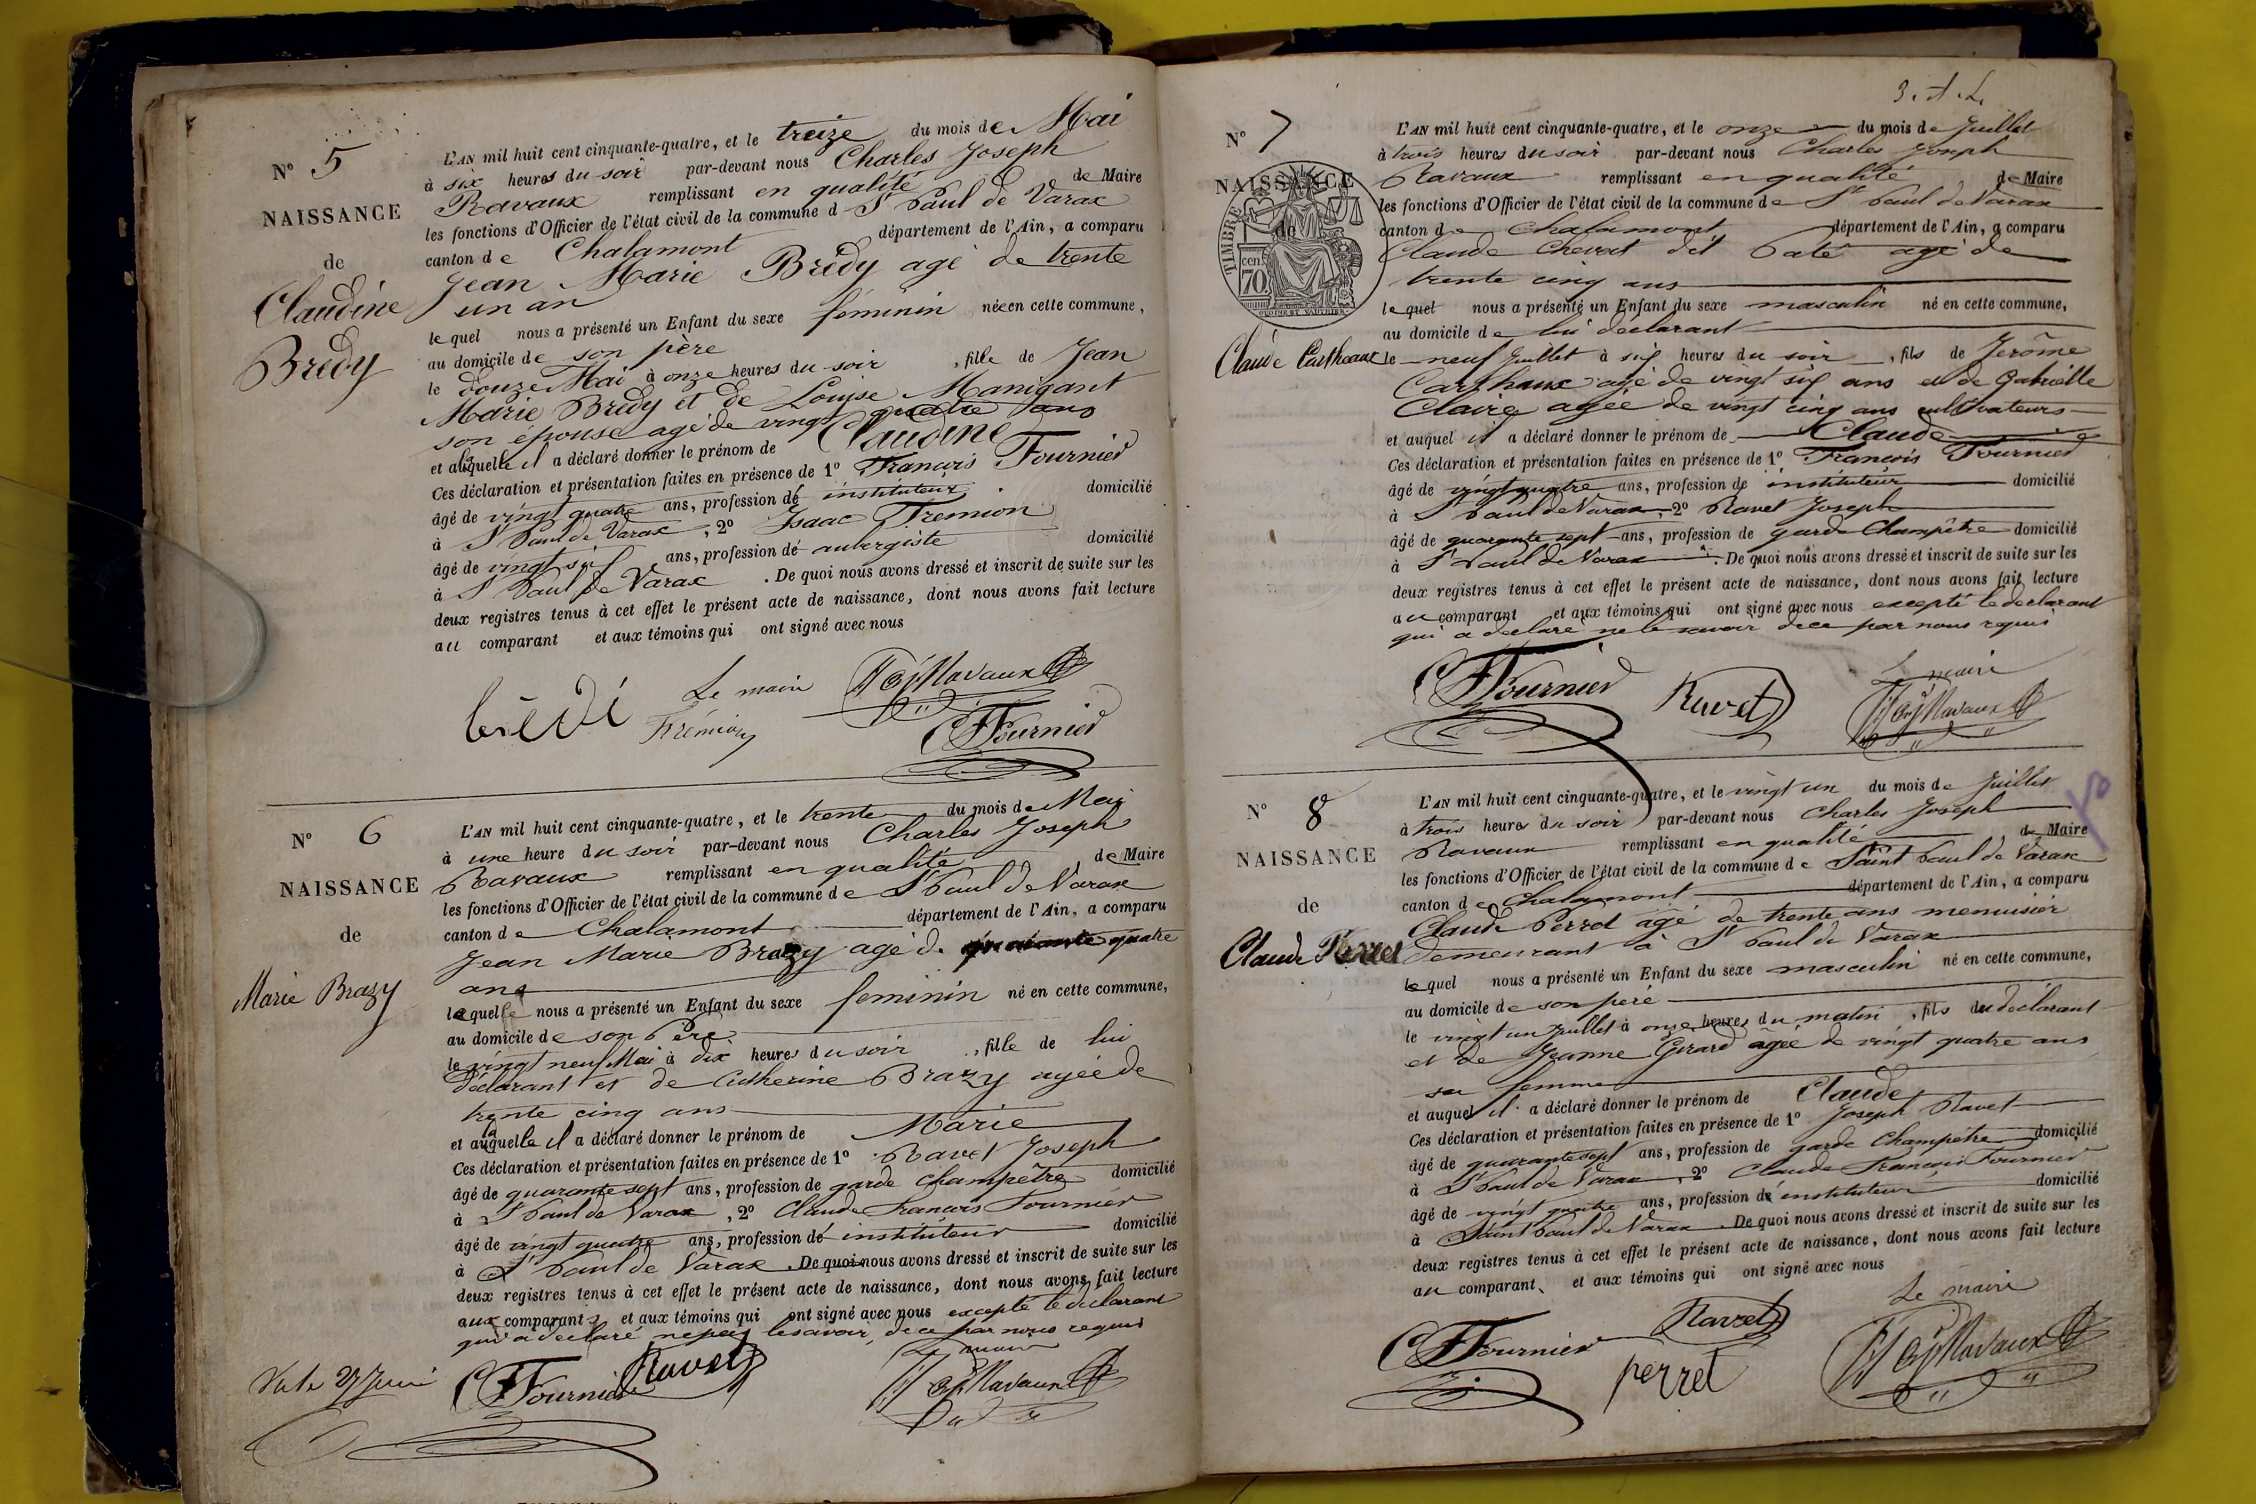 N° 5
NAISSANCE
de
Claudine
Bredy
L'AN mil huit cent cinquante-quatre, et le treize du mois de Mai
à six heures du soir par-devant nous Charles Joseph
Ravaux remplissant en qualité de Maire
les fonctions d'Officier de l'état civil de la commune d St Paul de Varax
canton de Chalamont département de l'Ain, a comparu
Jean Marie Brédy agé de trente
un an
lequel nous a présenté un Enfant du sexe féminin née en cette commune,
au domicile de son père
le douze Mai à onze heures du soir, fille de Jean
Marie Bredy et de Louise Manigant
son épouse agé de vingt quatre ans
et à laquelle il a déclaré donner le prénom de Claudine
Ces déclaration et présentation faites en présence de 1° Francois Fournier
âgé de vingt quatre ans, profession de instituteur domicilié
à St Paul de Varax, 2° Isaac Fremion
âgé de vingt six ans, profession de aubergiste domicilié
à St Paul de Varax. De quoi nous avons dressé et inscrit de suite sur les
deux registres tenus à cet effet le présent acte de naissance, dont nous avons fait lecture
au comparant et aux témoins qui ont signé avec nous
brédi Le maire Ravaux
Frémion CF Fournier
N° 6
NAISSANCE
de
Marie Brazy
L'AN mil huit cent cinquante-quatre, et le trente du mois de Mai
à une heure du soir par-devant nous Charles Joseph
Ravaux remplissant en qualité de Maire
les fonctions d'Officier de l'état civil de la commune de St Paul de Varax
canton de Chalamont département de l'Ain, a comparu
Jean Marie Brazy agé de quarante quatre
ans
lequel nous a présenté un Enfant du sexe feminin né en cette commune,
au domicile de son Père
le vingt neuf Mai à dix heures du soir, fille de lui
déclarant et de Catherine Brazy agée de
trente cinq ans
et à laquelle il a déclaré donner le prénom de Marie
Ces déclaration et présentation faites en présence de 1° Ravet Joseph
âgé de quarante sept ans, profession de garde champêtre domicilié
à St Paul de Varax, 2° Claude Francois Fournier
âgé de vingt quatre ans, profession de instituteur domicilié
à St Paul de Varax. De quoi nous avons dressé et inscrit de suite sur les
deux registres tenus à cet effet le présent acte de naissance, dont nous avons fait lecture
aux comparants et aux témoins qui ont signé avec nous excepté le declarant
qui a déclaré ne pas le savoir de ce par nous requis
CF Fournier Ravet Le maire Ravaux
3. A. L.
N° 7
NAISSANCE
de
TIMBRE
cen
70
Claude Carthaux
L'AN mil huit cent cinquante-quatre, et le onze du mois de Juillet
à trois heures du soir par-devant nous Charles Joseph
Ravaux remplissant en qualité de Maire
les fonctions d'Officier de l'état civil de la commune de St Paul de Varax
canton de Chalamont département de l'Ain, a comparu
Claude Chevat dit Paté agé de
trente cinq ans
lequel nous a présenté un Enfant du sexe masculin né en cette commune,
au domicile de lui déclarant
le neuf Juillet à six heures du soir, fils de Jerôme
Carthaux agé de vingt six ans et de Gabrielle
Claire agée de vingt cinq ans cultivateurs
et auquel il a déclaré donner le prénom de Claude
Ces déclaration et présentation faites en présence de 1° Francois Fournier
âgé de vingt quatre ans, profession de instituteur domicilié
à St Paul de Varax, 2° Ravet Joseph
âgé de quarante sept ans, profession de garde Champêtre domicilié
à St Paul de Varax. De quoi nous avons dressé et inscrit de suite sur les
deux registres tenus à cet effet le présent acte de naissance, dont nous avons fait lecture
au comparant et aux témoins qui ont signé avec nous excepté le declarant
qui a déclaré ne le savoir de ce par nous requis
CF Fournier Ravet Le maire Ravaux
N° 8
NAISSANCE
de
Claude Perret
L'AN mil huit cent cinquante-quatre, et le vingt un du mois de Juillet
à trois heures du soir par-devant nous Charles Joseph
Ravaux remplissant en qualité de Maire
les fonctions d'Officier de l'état civil de la commune de Saint Paul de Varax
canton de Chalamont département de l'Ain, a comparu
Claude Perret agé de trente ans menuisier
demeurant à St Paul de Varax
lequel nous a présenté un Enfant du sexe masculin né en cette commune,
au domicile de son père
le vingt un juillet à onze heures du matin, fils du déclarant
et de Jeanne Girard agée de vingt quatre ans
sa femme
et auquel il a déclaré donner le prénom de Claude
Ces déclaration et présentation faites en présence de 1° Joseph Ravet
âgé de quarante sept ans, profession de garde Champêtre domicilié
à St Paul de Varax, 2° Claude Francois Fournier
âgé de vingt quatre ans, profession de instituteur domicilié
à Saint Paul de Varax. De quoi nous avons dressé et inscrit de suite sur les
deux registres tenus à cet effet le présent acte de naissance, dont nous avons fait lecture
au comparant et aux témoins qui ont signé avec nous
Le maire
CF Fournier Ravet Ravaux
perret